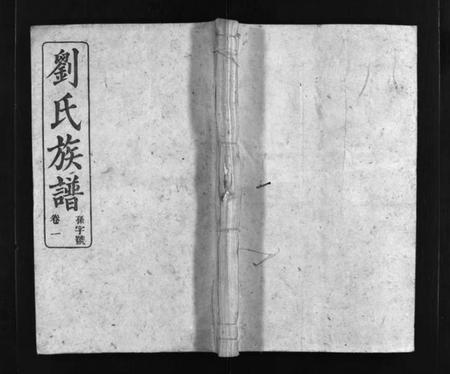 劉氏族譜
孫字號
卷一